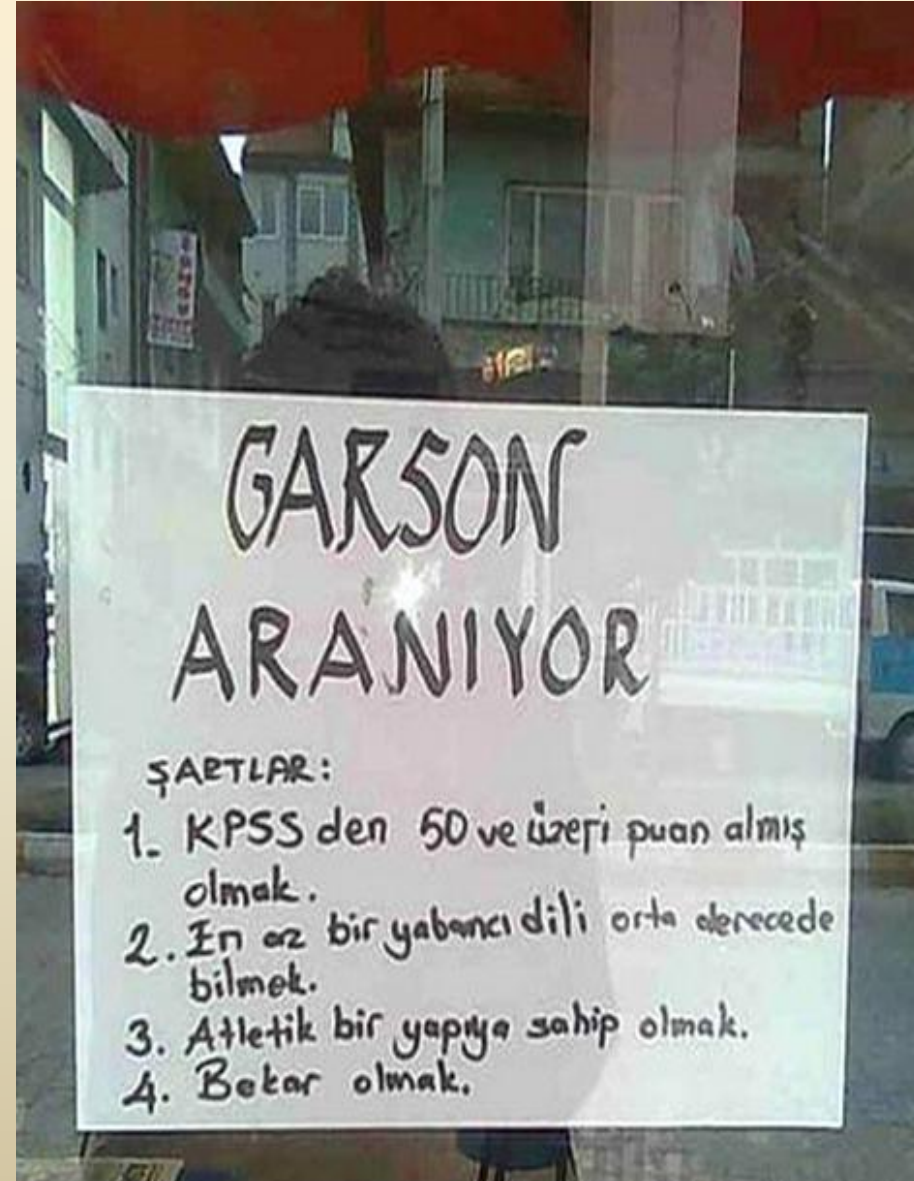 GARSON
ARANIYOR
ŞARTLAR:
1. KPSS den 50 ve üzeri puan almış
olmak.
2. En az bir yabancı dili orta derecede
bilmek.
3. Atletik bir yapıya sahip olmak.
4. Bekar olmak.